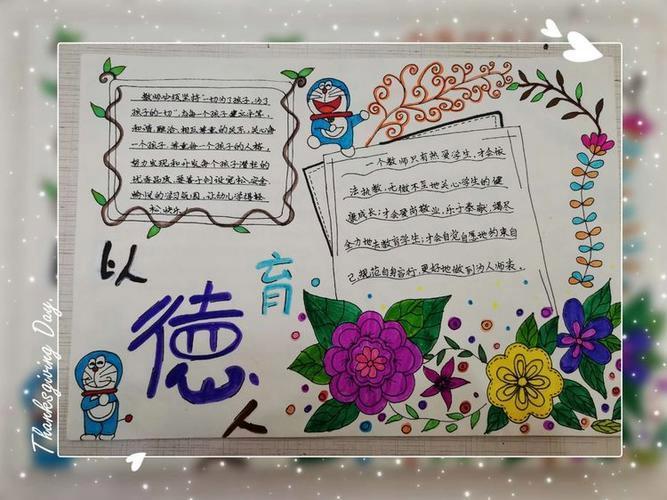 教师必须坚持“一切为了孩子,为了
孩子的一切”,为每个孩子建立平等,
和谐、融洽、相互尊重的关系,关心每
一个孩子,尊重每一个孩子的人格,
努力发现和开发每个孩子潜在的
优秀品质,要善于创设宽松、安全
愉悦的学习氛围,让幼儿学得轻
松快乐
一个教师只有热爱学生,才会依
法执教,无微不至地关心学生的健
康成长;才会爱岗敬业,乐于奉献,竭尽
全力地去教育学生;才会自觉自愿地约束自
己,规范自身言行,更好地做到为人师表。
以
德
育
人
Thanksgiving Day.